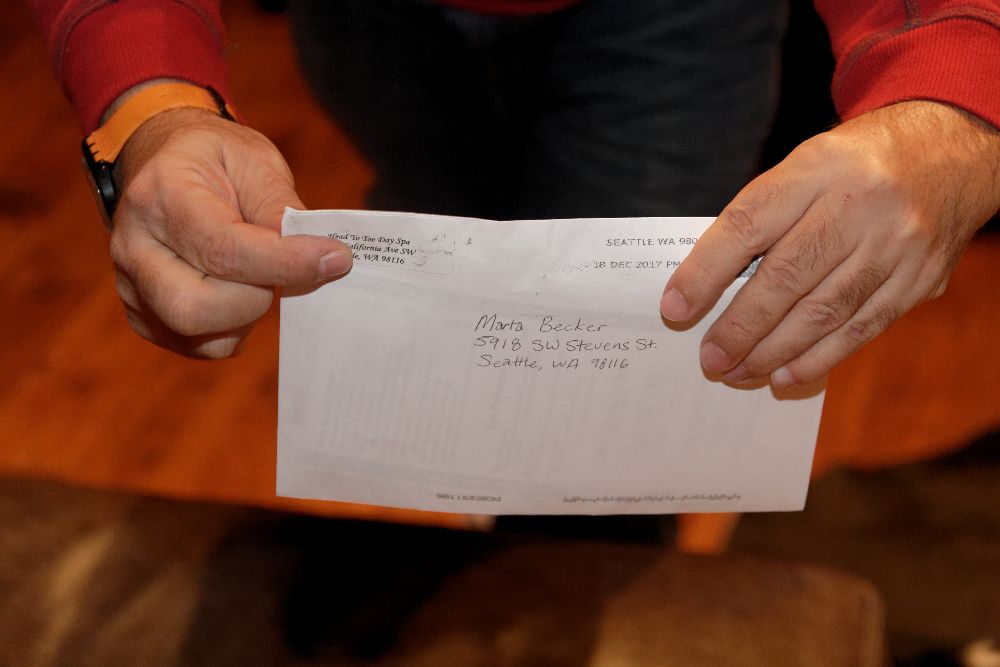 Head To Toe Day Spa
California Ave SW
WA 98116
SEATTLE WA 980
18 DEC 2017 PM
Marta Becker
5918 SW Stevens St.
Seattle, WA 98116